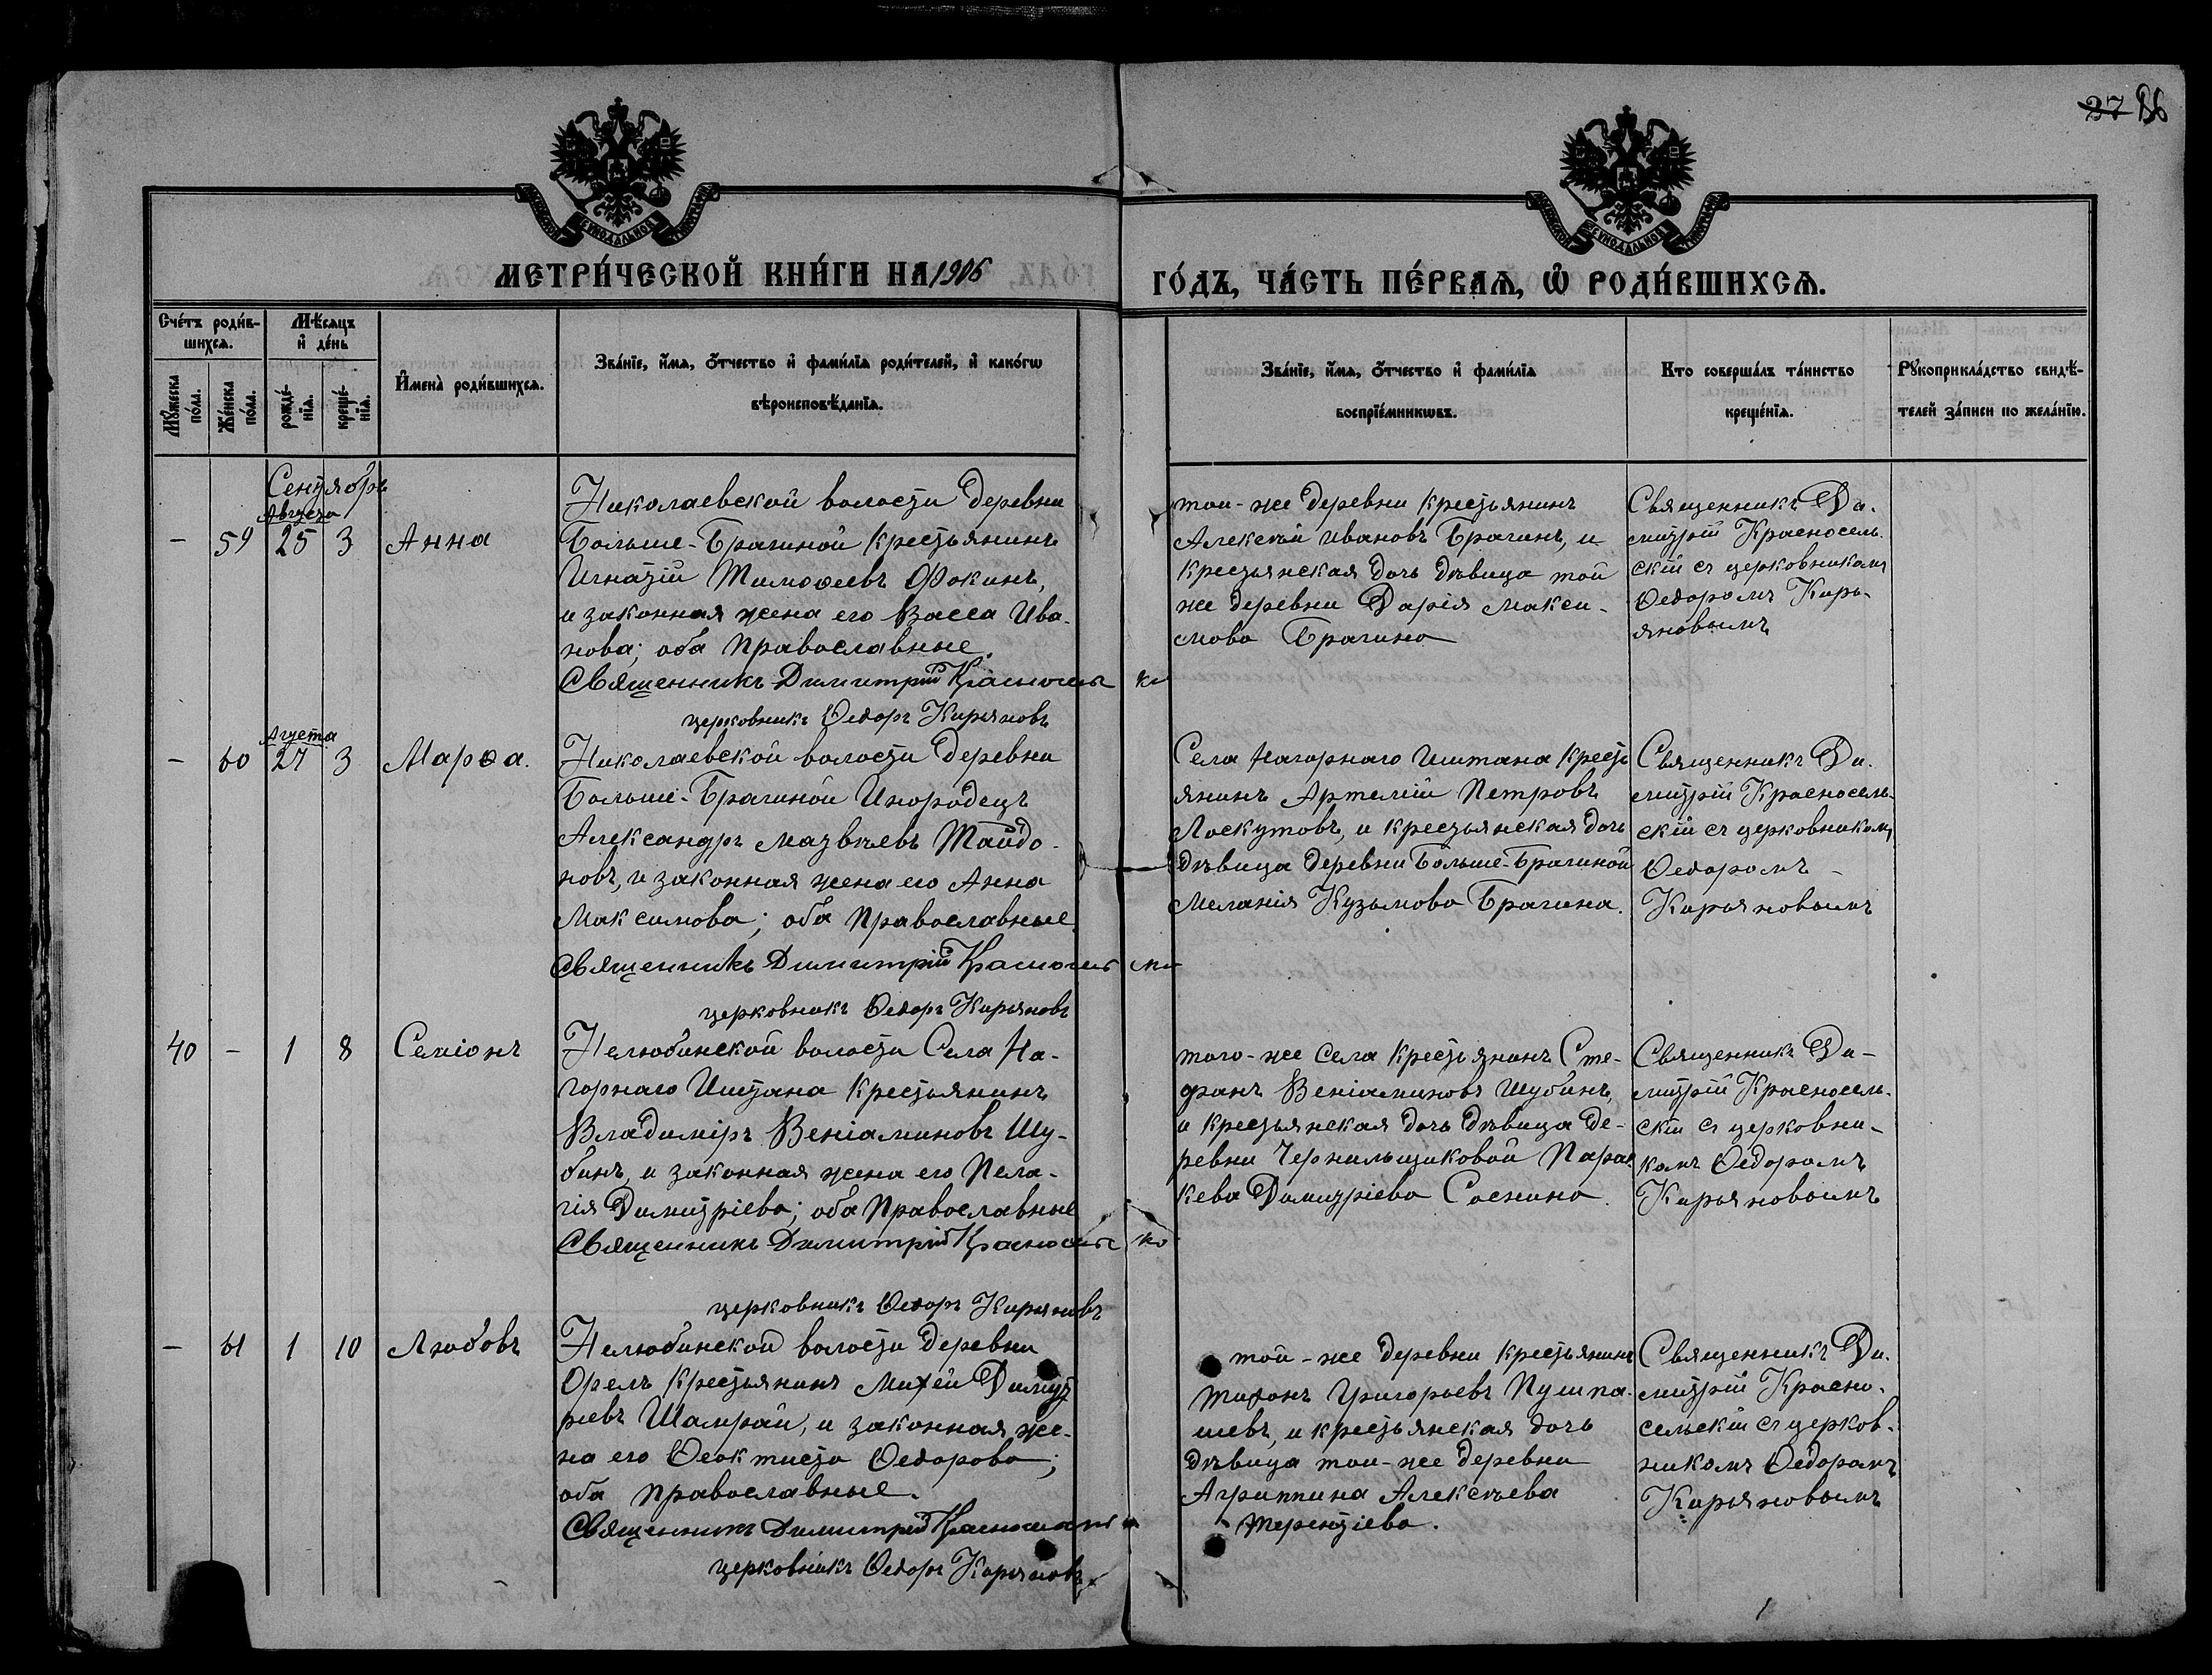 27 86
МЕТРИ́ЧЕСКОЙ КНИ́ГИ НА 1906 ГО́ДЪ, ЧА́СТЬ ПЕ́РВАѦ, Ѡ҆ РОДИ́ВШИХСѦ.
Сче́тъ роди́в-
шихсѧ.
Мꙋ́жеска
по́ла.
Же́нска
по́ла.
Мѣ́сѧцъ
и҆ де́нь
рожде́-
нїѧ.
креще́-
нїѧ.
И҆мена̀ роди́вшихсѧ.
Зва́нїе, и҆́мѧ, ѻ҆́тчество и҆ фами́лїѧ роди́телей, и҆ како́гѡ
вѣроисповѣ́данїѧ.
Зва́нїе, и҆́мѧ, ѻ҆́тчество и҆ фами́лїѧ
воспрїе́мникѡвъ.
Кто соверша́лъ та́инство
креще́нїѧ.
Рꙋкоприкла́дство свидѣ́-
телей за́писи по жела́нїю.
Сентябрь
Августа
- 59 25 3 Анна
Николаевской волости деревни
Больше-Брагиной крестьянинъ
Игнатій Тимоѳеевъ Фокинъ,
и законная жена его Васса Ива-
нова; оба православные.
Священникъ Димитрій Красносельс
церковникъ Ѳедоръ Кирьяновъ
той-же деревни крестьянинъ
Алексѣй Ивановъ Брагинъ, и
крестьянская дочь дѣвица той
же деревни Дарія Макси-
мова Брагина
Священникъ Ди-
митрій Красносель-
скій съ церковникомъ
Ѳедоромъ Кирь-
яновымъ
Августа
- 60 27 3 Марѳа.
Николаевской волости деревни
Больше-Брагиной Инородецъ
Александръ Матвѣевъ Тайдо-
новъ, и законная жена его Анна
Максимова; оба православные.
Священникъ Димитрій Красносельс
церковникъ Ѳедоръ Кирьяновъ
Села Нагорнаго Иштана крестъ
янинъ Артемій Петровъ
Лоскутовъ, и крестьянская дочь
дѣвица деревни Больше-Брагиной
Меланія Кузьмова Брагина.
Священникъ Ди-
митрій Красносель-
скій съ церковникомъ
Ѳедоромъ -
Кирьяновымъ
40 - 1 8 Семіонъ
Нелюбинской волости Села На-
горнаго Иштана крестьянинъ
Владиміръ Веніаминовъ Шу-
бинъ, и законная жена его Пела-
гія Димитріева; оба православные
Священникъ Димитрій Красносельс
церковникъ Ѳедоръ Кирьяновъ
того-же села крестьянинъ Сте-
фанъ Веніаминовъ Шубинъ,
и крестьянская дочь дѣвица де-
ревни Чернильщиковой Парас
кева Димитріева Соснина.
Священникъ Ди-
митрій Красносель-
скій съ церковни-
комъ Ѳедоромъ
Кирьяновымъ
- 61 1 10 Любовь
Нелюбинской волости деревни
Орелъ крестьянинъ Михей Димит
ріевъ Шамрай, и законная же-
на его Ѳеоктиста Ѳедорова;
оба православные.
Священникъ Димитрій Красносельс
церковникъ Ѳедоръ Кирьяновъ
той-же деревни крестьянинъ
Тихонъ Григорьевъ Пушпа-
шевъ, и крестьянская дочь
дѣвица той-же деревни
Агриппина Алексѣева
Терентіева.
Священникъ Ди-
митрій Красно-
сельскій съ церков-
никомъ Ѳедоромъ
Кирьяновымъ